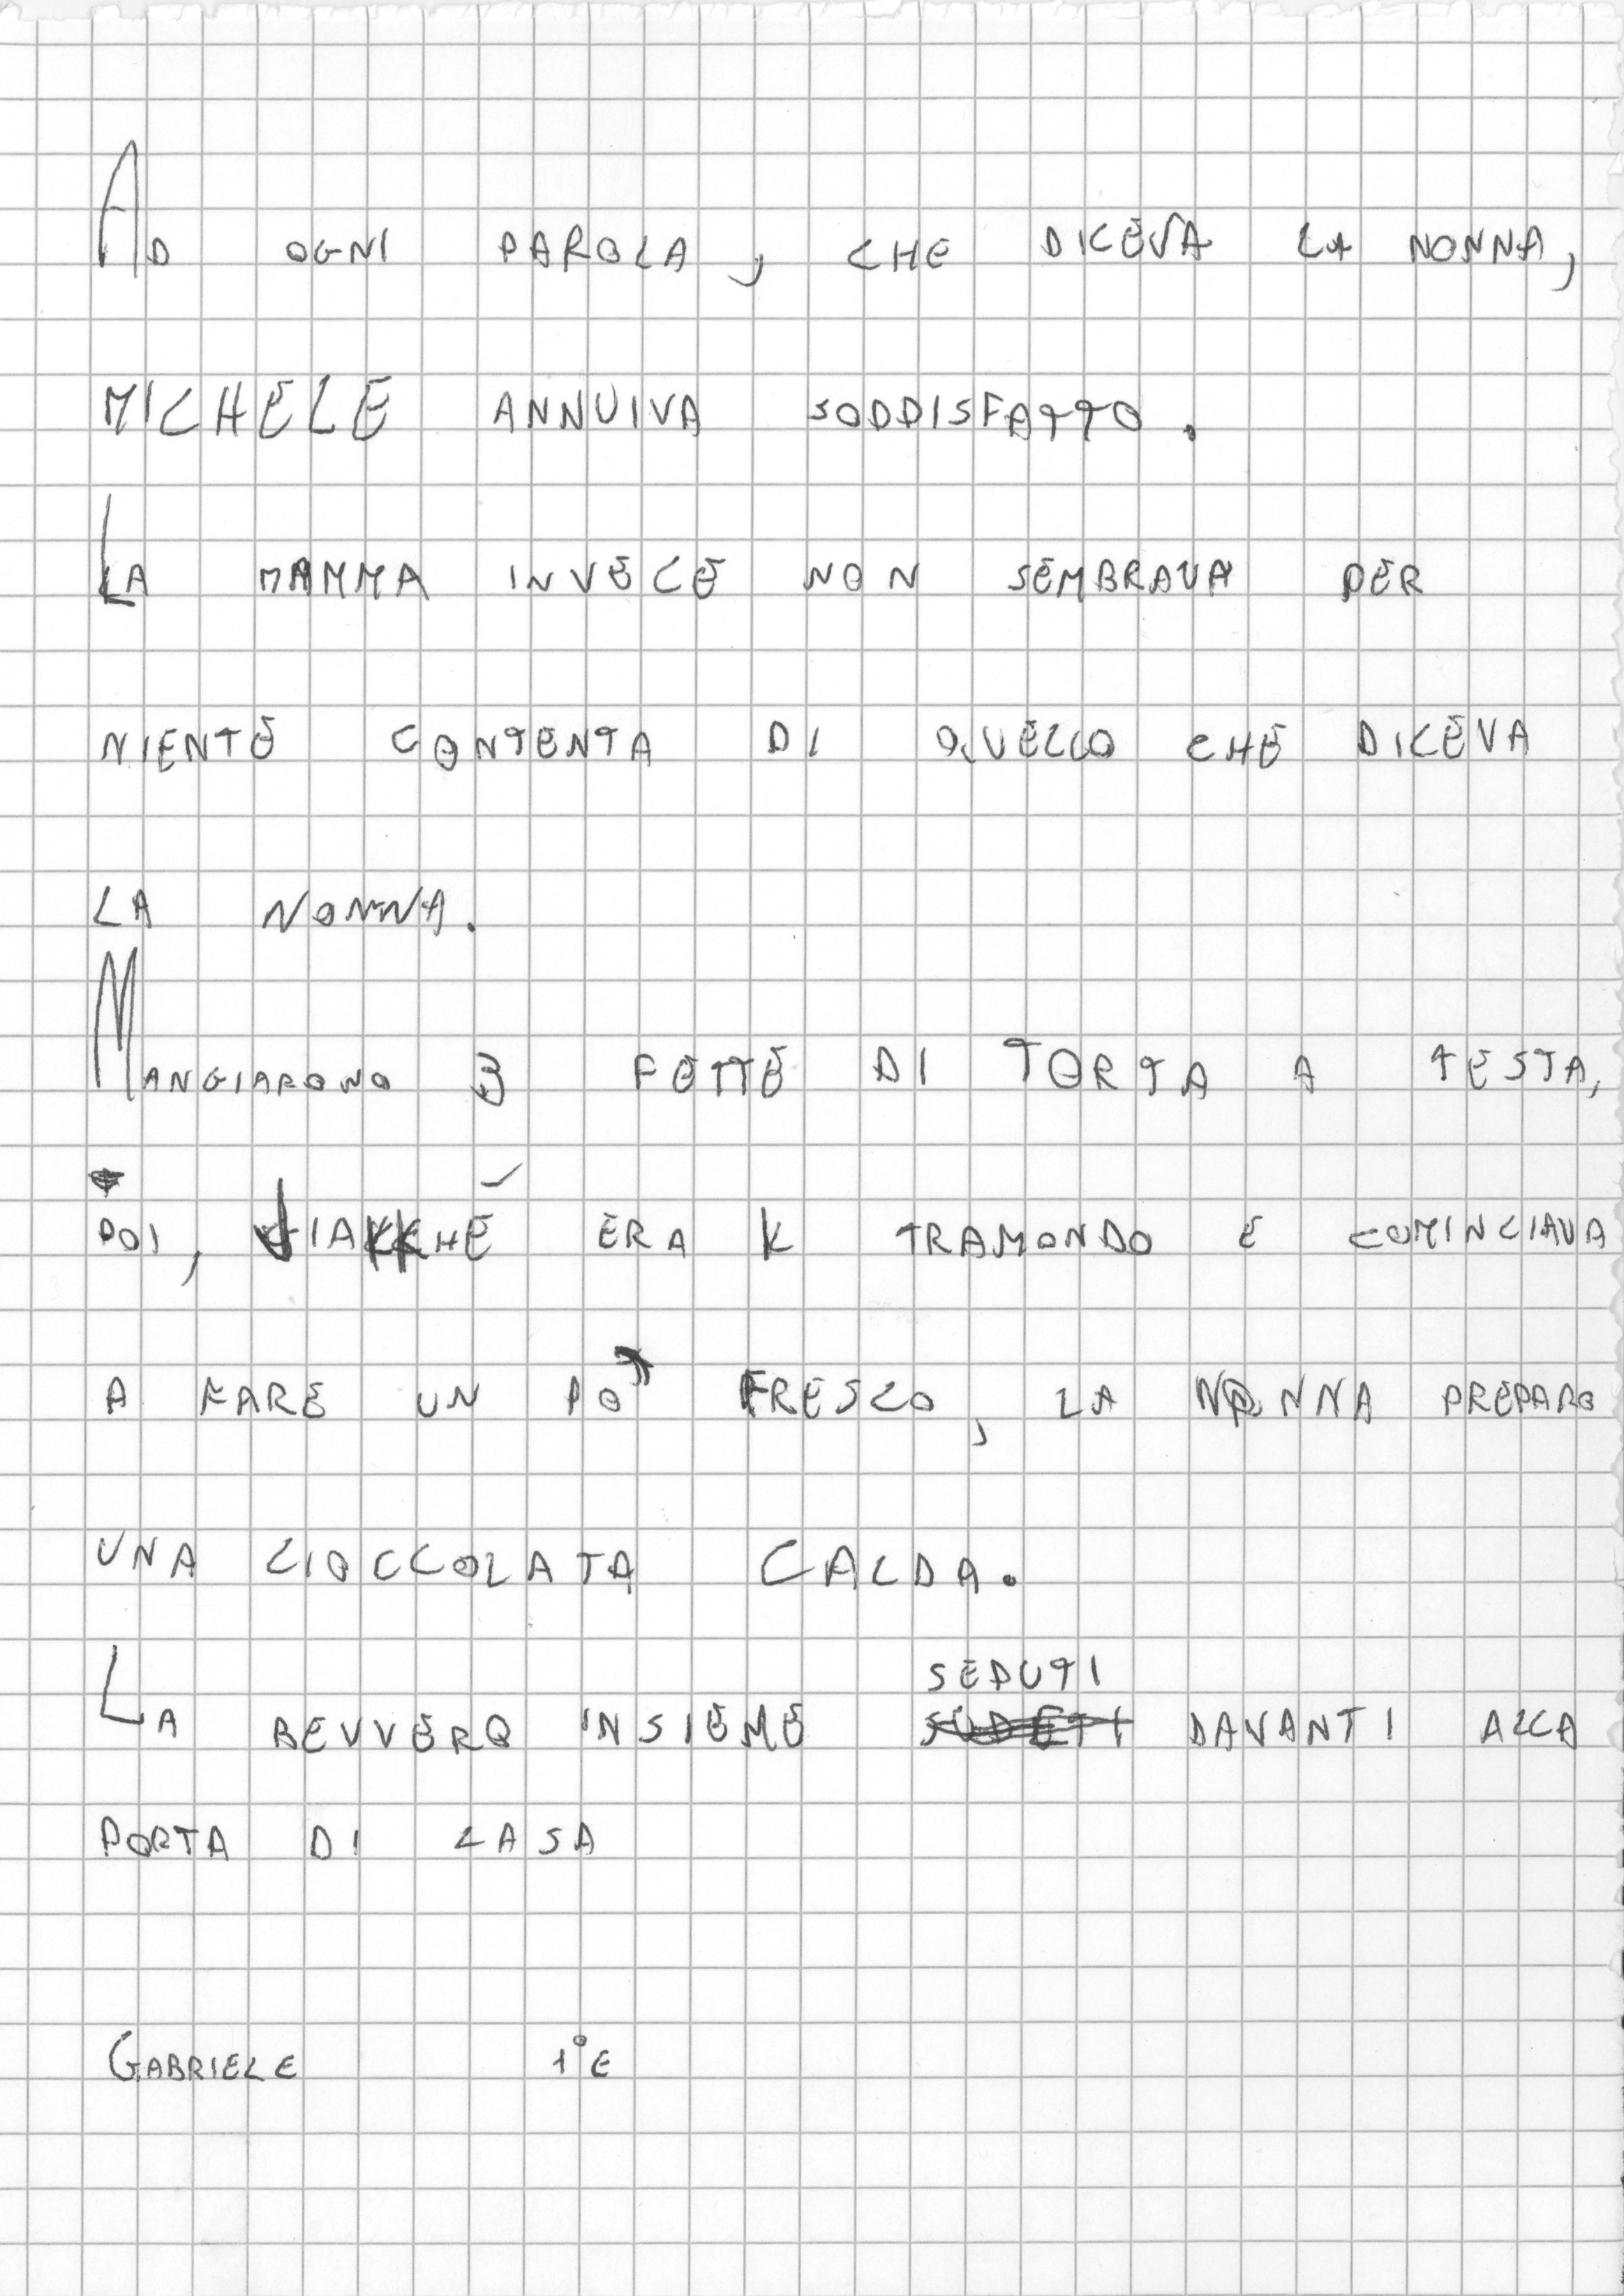 AD OGNI PAROLA, CHE DICEVA LA NONNA,
MICHELE ANNUIVA SODDISFATTO.
LA MAMMA INVECE NON SEMBRAVA PER
NIENTE CONTENTA DI QUELLO CHE DICEVA
LA NONNA.
MANGIARONO 3 FETTE DI TORTA A TESTA,
POI, ERA TRAMONDO E COMINCIAVA
A FARE UN PO' FRESCO, LA NONNA PREPARO
UNA CIOCCOLATA CALDA.
SEDUTI
LA BEVVERO INSIEME DAVANTI ALLA
PORTA DI CASA
GABRIELE 1°E